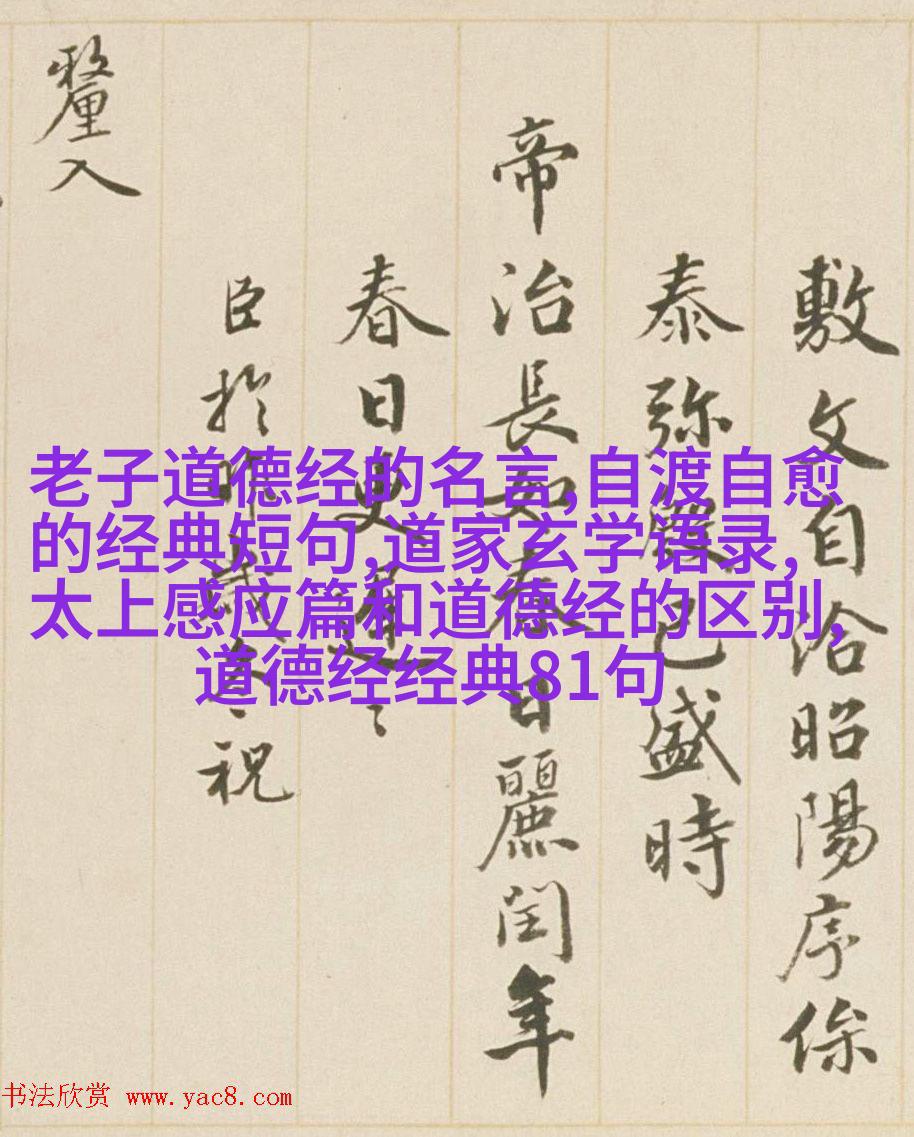 敷文自洽昭陽序
泰弥已盛時
帝治長如春日麗閏年
春日更遲〻
臣於昨歲冬祝
釐入
老子道德经的名言,自渡自愈
的经典短句,道家玄学语录,
太上感应篇和道德经的区别,
道德经经典81句
书法欣赏 www.yac8.com